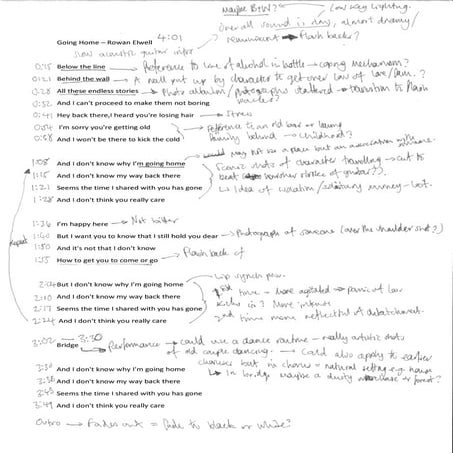 Maybe B+W? Low key lighting.
Over all sound is slow, almost dreamy/
reminiscent → Flash backs?
4:01
Going Home – Rowan Elwell
slow acoustic guitar intro
0:15 Below the line → Reference to line of alcohol in bottle → coping mechanism?
0:21 Behind the wall → A wall put up by character to get over loss of love/fam.?
0:28 All these endless stories → Photo album/photographs scattered → transition to flash
0:32 And I can't proceed to make them not boring
0:41 Hey back there,I heard you're losing hair → Stress
0:54 I'm sorry you're getting old
And I won't be there to kick the cold
family behind → childhood?
1:08 And I don't know why I'm going home
1:15 And I don't know my way back there
1:21 Seems the time I shared with you has gone
1:28 And I don't think you really care
Scenic shots of character travelling → cut to
beat
Idea of isolation/solitary journey - lost.
repeat
1:36 I'm happy here → Not bitter
1:40 But I want you to know that I still hold you dear → Photograph of someone (over the shoulder shot?)
1:50 And it's not that I don't know
1:55 How to get you to come or go → Flash back of
Lip synch
But I don't know why I'm going home
2:10 And I don't know my way back there
2:17 Seems the time I shared with you has gone
2:24 And I don't think you really care
1st time → more agitated → panic of loss
kicks in? More intense
2nd time more reflective of detachment.
3:02 – 3:30
Bridge → Performance → could use a dance routine → really artistic shots
of old couple dancing. → Could also apply to earlier
choruses but in chorus = natural setting e.g. house
In bridge maybe a dusty or forest?
3:30 And I don't know why I'm going home
3:38 And I don't know my way back there
3:43 Seems the time I shared with you has gone
3:49 And I don't think you really care
Outro → Fades out = fade to black or white?